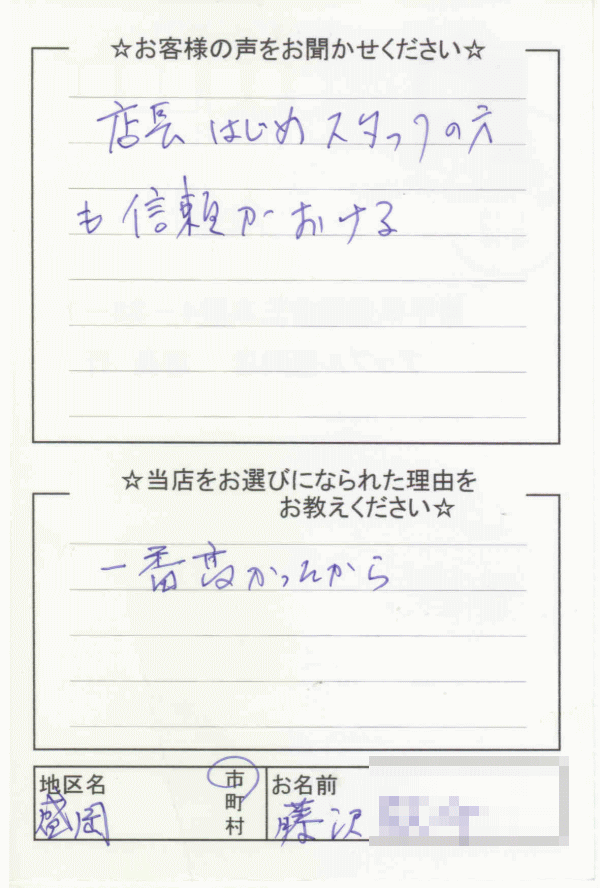 ☆お客様の声をお聞かせください☆
店長はじめスタッフの方
も信頼がおける
☆当店をお選びになられた理由を
お教えください☆
一番高かったから
地区名
盛岡
市
町
村
お名前
藤沢